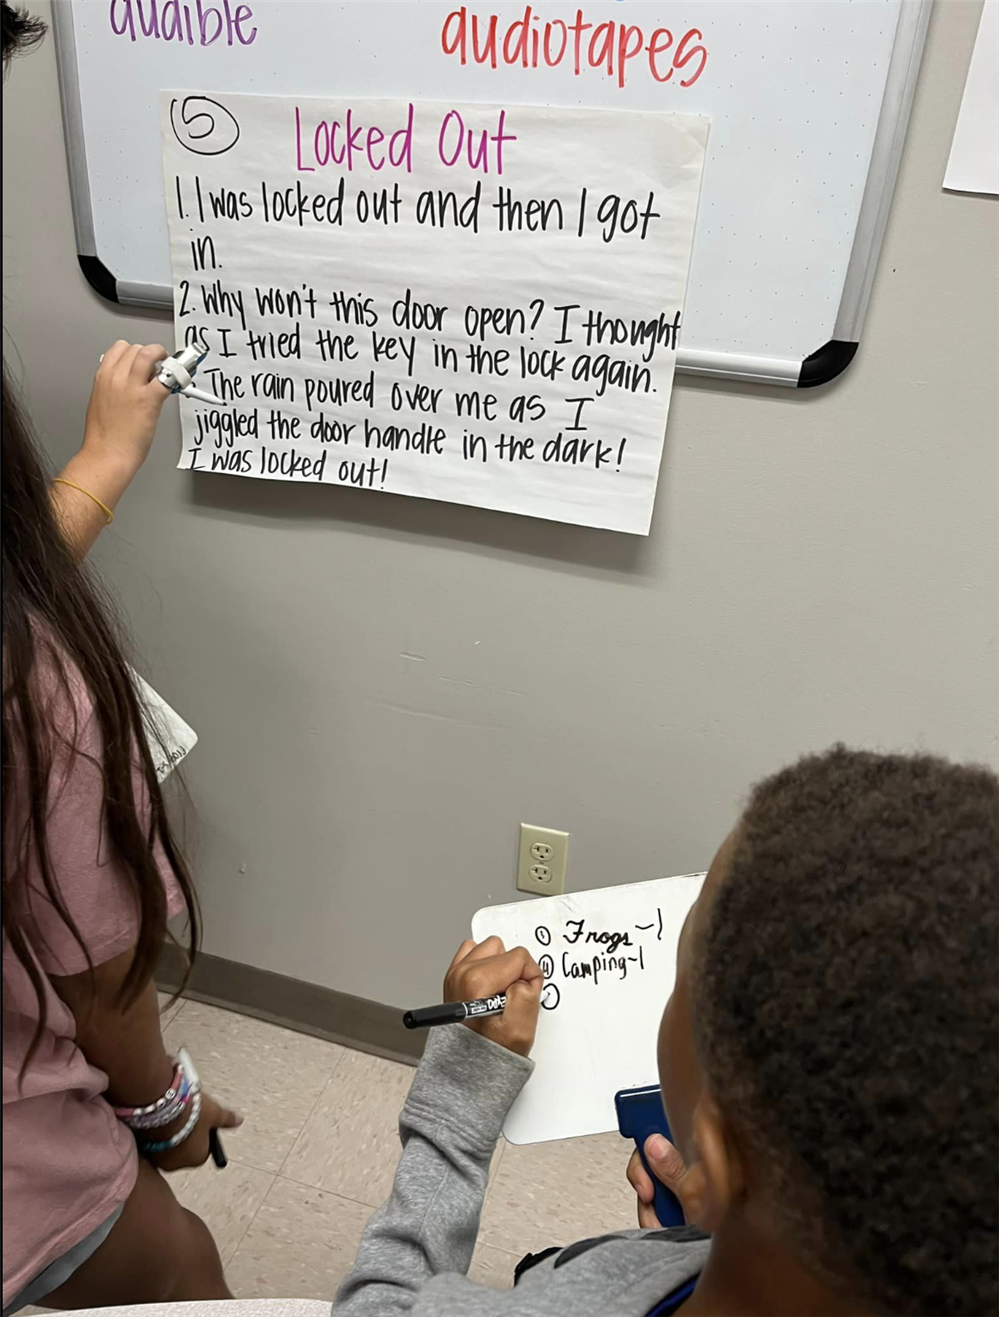 audible
audiotapes
5
Locked Out
1. I was locked out and then I got
in.
2. Why won't this door open? I thought
as I tried the key in the lock again.
The rain poured over me as I
jiggled the door handle in the dark!
I was locked out!
Frogs-1
Camping-1
EXPO